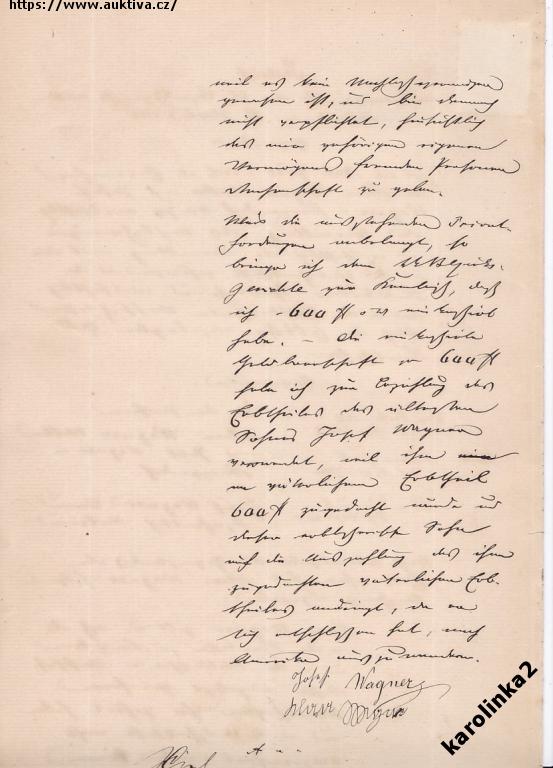 https://www.auktiva.cz/
weil es kein Nachlassvermögen
gewesen ist, und bin demnach
nicht verpflichtet, hinsichtlich
des mir gehörigen eigenen
Vermögens fremden Personen
Rechenschaft zu geben.
Was die ausstehenden Privat-
forderungen anbelangt, so
bringe ich dem k.k. Bezirks-
gerichte zur Kenntniß, daß
ich 600 fl ö W einkassirt
habe. – Die einkassirte
Geldbaarschaft pr 600 fl
habe ich zur Auszahlung des
Erbtheiles des ältesten
Sohnes Josef Wagner
verwendet, weil ihm
an väterlichem Erbtheil
600 fl zugedacht wurde und
dieser Sohn
auf die Auszahlung des ihm
zugedachten väterlichen Erb-
theiles andringt, da er
sich entschlossen hat, nach
Amerika auszuwandern.
Josef Wagner
Wagner
karolinka2